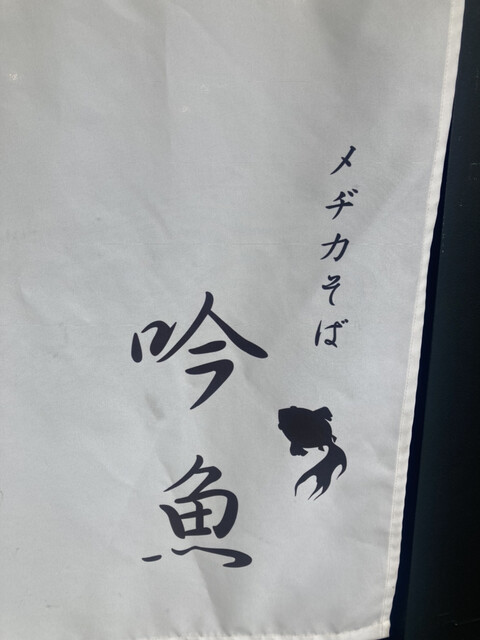 メヂカそば
吟魚